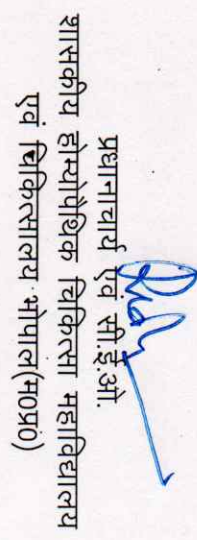 प्रधानाचार्य एवं सी.ई.ओ.
शासकीय होम्योपैथिक चिकित्सा महाविद्यालय
एवं चिकित्सालय भोपाल(म0प्र0)